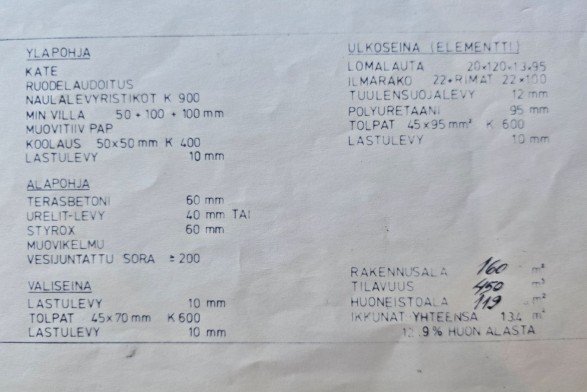 YLAPOHJA
KATE
RUODELAUDOITUS
NAULALEVYRISTIKOT K 900
MIN VILLA 50 + 100 + 100 mm
MUOVITIIV PAP
KOOLAUS 50x50 mm K 400
LASTULEVY 10 mm
ALAPOHJA
TERASBETONI 60 mm
URELIT-LEVY 40 mm TAI
STYROX 60 mm
MUOVIKELMU
VESIJUNTATTU SORA ≥ 200
VALISEINA
LASTULEVY 10 mm
TOLPAT 45x70 mm K 600
LASTULEVY 10 mm
ULKOSEINA (ELEMENTTI)
LOMALAUTA 20x120+13x95
ILMARAKO 22+RIMAT 22x100
TUULENSUOJALEVY 12 mm
POLYURETAANI 95 mm
TOLPAT 45x95 mm² K 600
LASTULEVY 10 mm
RAKENNUSALA 160 m²
TILAVUUS 450 m³
HUONEISTOALA 119 m²
IKKUNAT YHTEENSA 13.4 m²
% HUON ALASTA